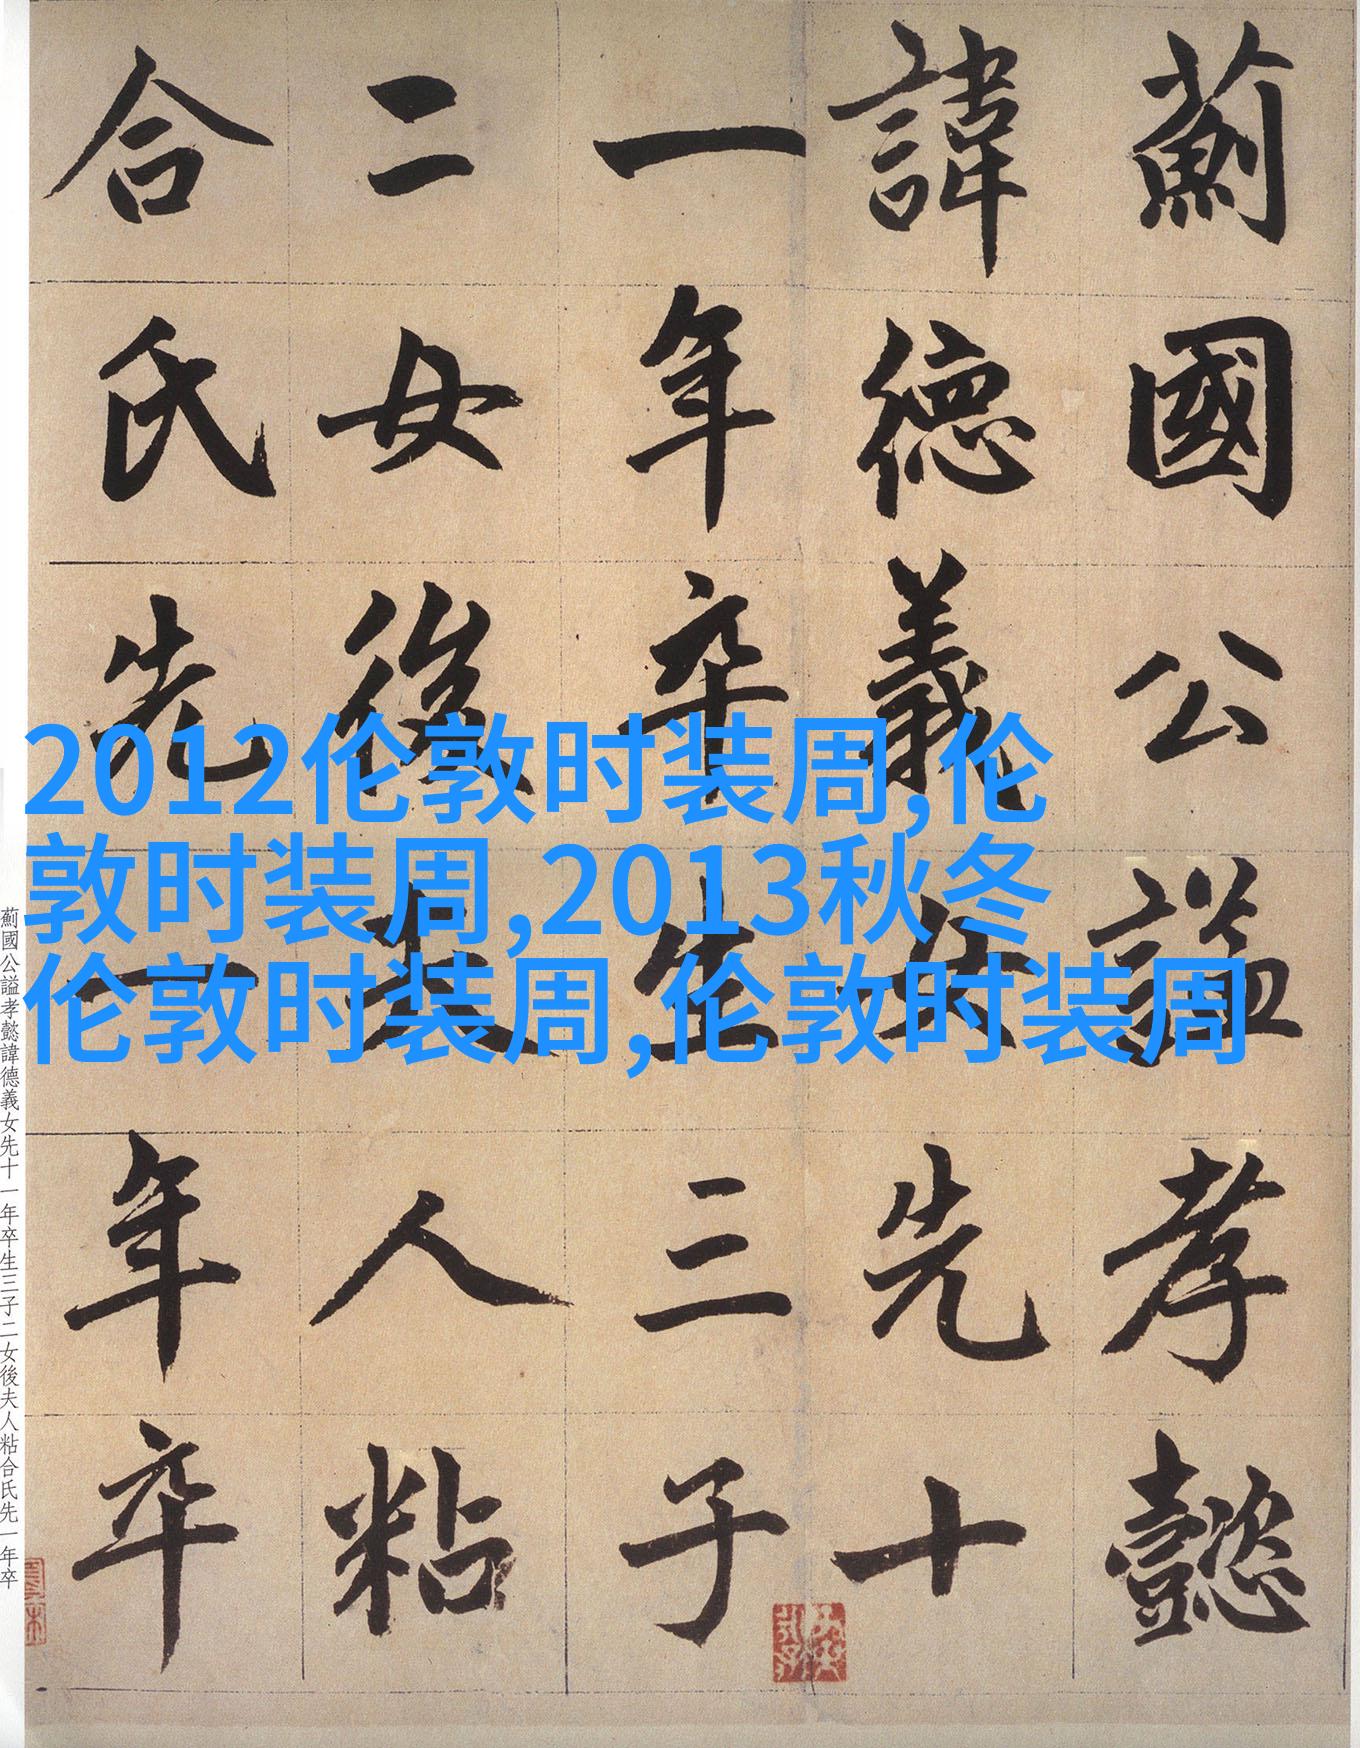 薊國公謚孝懿
諱德義女先十
一年卒生三子
二女後夫人粘
合氏先一年卒
2012伦敦时装周,伦
敦时装周,2013秋冬
伦敦时装周,伦敦时装周
薊國公謚孝懿諱德義女先十一年卒生三子二女後夫人粘合氏先一年卒